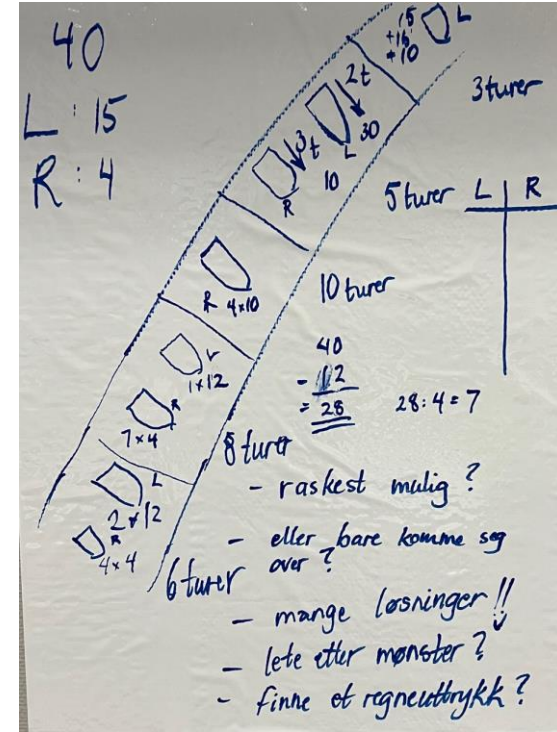 40
L : 15
R : 4
15
+15
+10
L
3 turer
2t
3t
L 30
R
10
5 turer
L | R
R 4x10
10 turer
40
- 12
= 28
28:4 = 7
L
1x12
R
7x4
8 turer
L
2x12
R
4x4
6 turer
- raskest mulig?
- eller bare komme seg
over?
- mange løsninger!!
- lete etter mønster?
- finne et regneuttrykk?